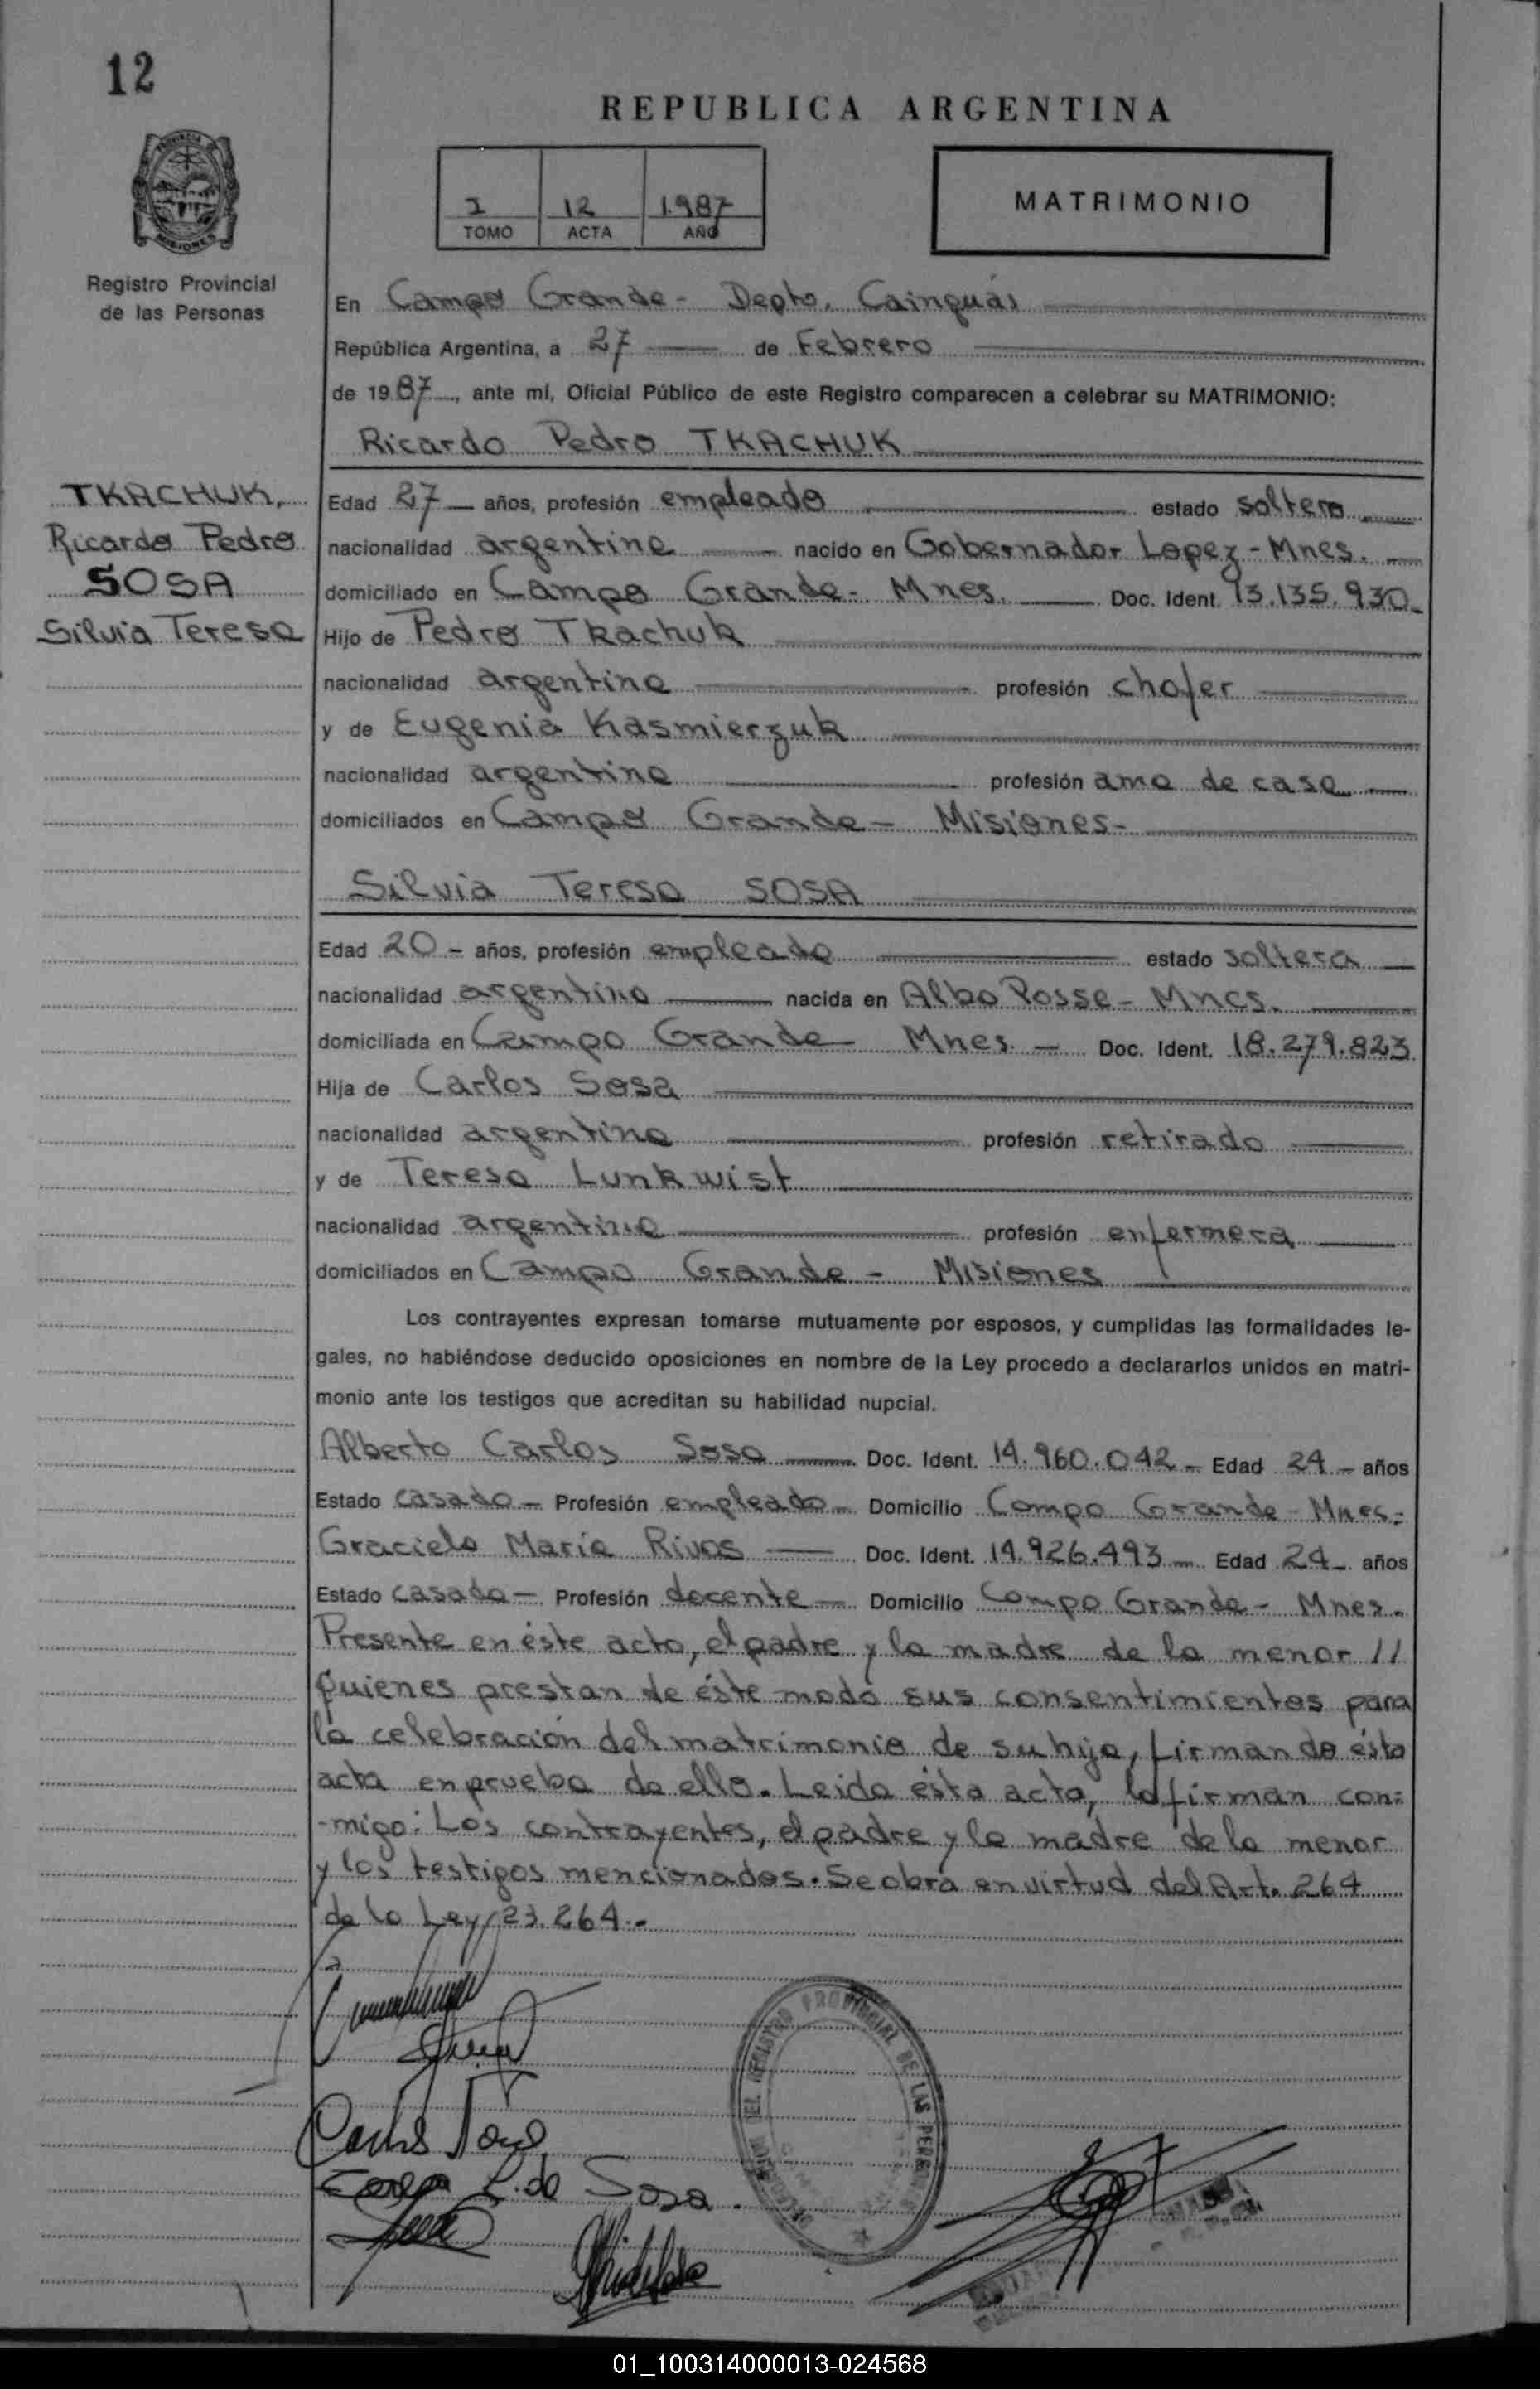 12
REPUBLICA ARGENTINA
I 12 1987
TOMO ACTA AÑO
MATRIMONIO
Registro Provincial
de las Personas
En Campo Grande - Depto. Cainguás
República Argentina, a 27 de Febrero
de 1987, ante mí, Oficial Público de este Registro comparecen a celebrar su MATRIMONIO:
Ricardo Pedro TKACHUK
TKACHUK,
Ricardo Pedro
SOSA
Silvia Teresa
Edad 27 años, profesión empleado estado soltero
nacionalidad argentina nacido en Gobernador Lopez - Mnes.
domiciliado en Campo Grande - Mnes. Doc. Ident. 13.135.930.
Hijo de Pedro Tkachuk
nacionalidad argentina profesión chofer
y de Eugenia Kasmierzuk
nacionalidad argentina profesión ama de casa
domiciliados en Campo Grande - Misiones-
Silvia Teresa SOSA
Edad 20 - años, profesión empleada estado soltera
nacionalidad argentina nacida en Alba Posse - Mnes.
domiciliada en Campo Grande Mnes - Doc. Ident. 18.279.823
Hija de Carlos Sosa
nacionalidad argentina profesión retirado
y de Teresa Lunkwist
nacionalidad argentina profesión enfermera
domiciliados en Campo Grande - Misiones
Los contrayentes expresan tomarse mutuamente por esposos, y cumplidas las formalidades le-
gales, no habiéndose deducido oposiciones en nombre de la Ley procedo a declararlos unidos en matri-
monio ante los testigos que acreditan su habilidad nupcial.
Alberto Carlos Sosa Doc. Ident. 14.960.042 - Edad 24 - años
Estado casado - Profesión empleado - Domicilio Campo Grande - Mnes.
Graciela María Rivas Doc. Ident. 14.926.493 - Edad 24 - años
Estado casada - Profesión docente - Domicilio Campo Grande - Mnes.
Presente en éste acto, el padre y la madre de la menor //
quienes prestan de éste modo sus consentimientos para
la celebración del matrimonio de su hija, firmando ésta
acta en prueba de ello. Leida ésta acta, la firman con-
-migo: Los contrayentes, el padre y la madre de la menor
y los testigos mencionados. Se obra en virtud del Art. 264
de la Ley 23.264.-
DEL REGISTRO PROVINCIAL DE LAS PERSONAS
L. de Sosa.
01_100314000013-024568